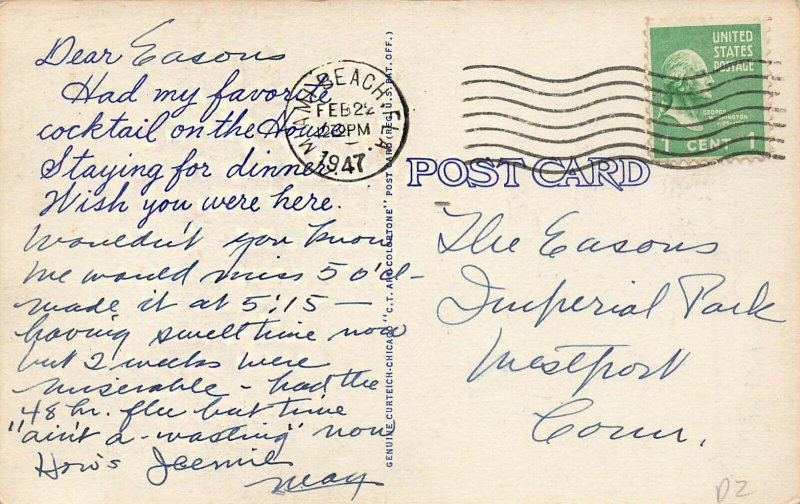 Dear Easons
Had my favorite
cocktail on the House
Staying for dinner
Wish you were here.
Wouldn't you know
we would miss 5 o'cl-
made it at 5:15 —
having swell time now
but 2 weeks were
miserable - had the
48 hr. flu but time
"ain't a-wasting" now
How's Jeemie
May
GENUINE CURTEICH-CHICAGO "C.T. ART-COLORTONE" POST CARD (REG. U.S. PAT. OFF.)
MIAMI BEACH, FLA.
FEB 22
12:30 PM
1947
UNITED
STATES
POSTAGE
GEORGE
WASHINGTON
1 CENT 1
POST CARD
The Easons
Imperial Park
Westport
Conn.
DZ